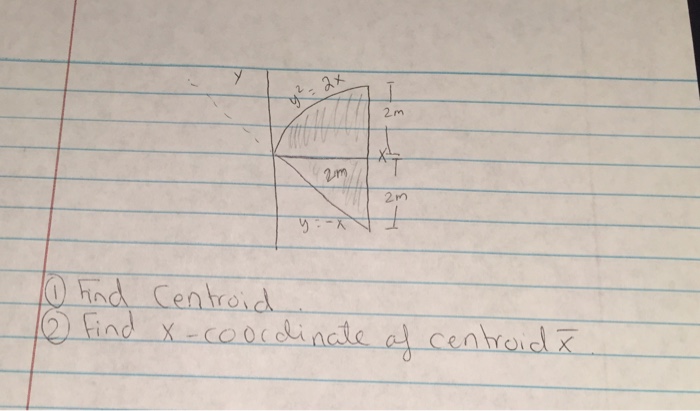 y
y² = 2x
2m
x
2m
2m
y = -x
① Find Centroid.
② Find x-coordinate of centroid x̄.